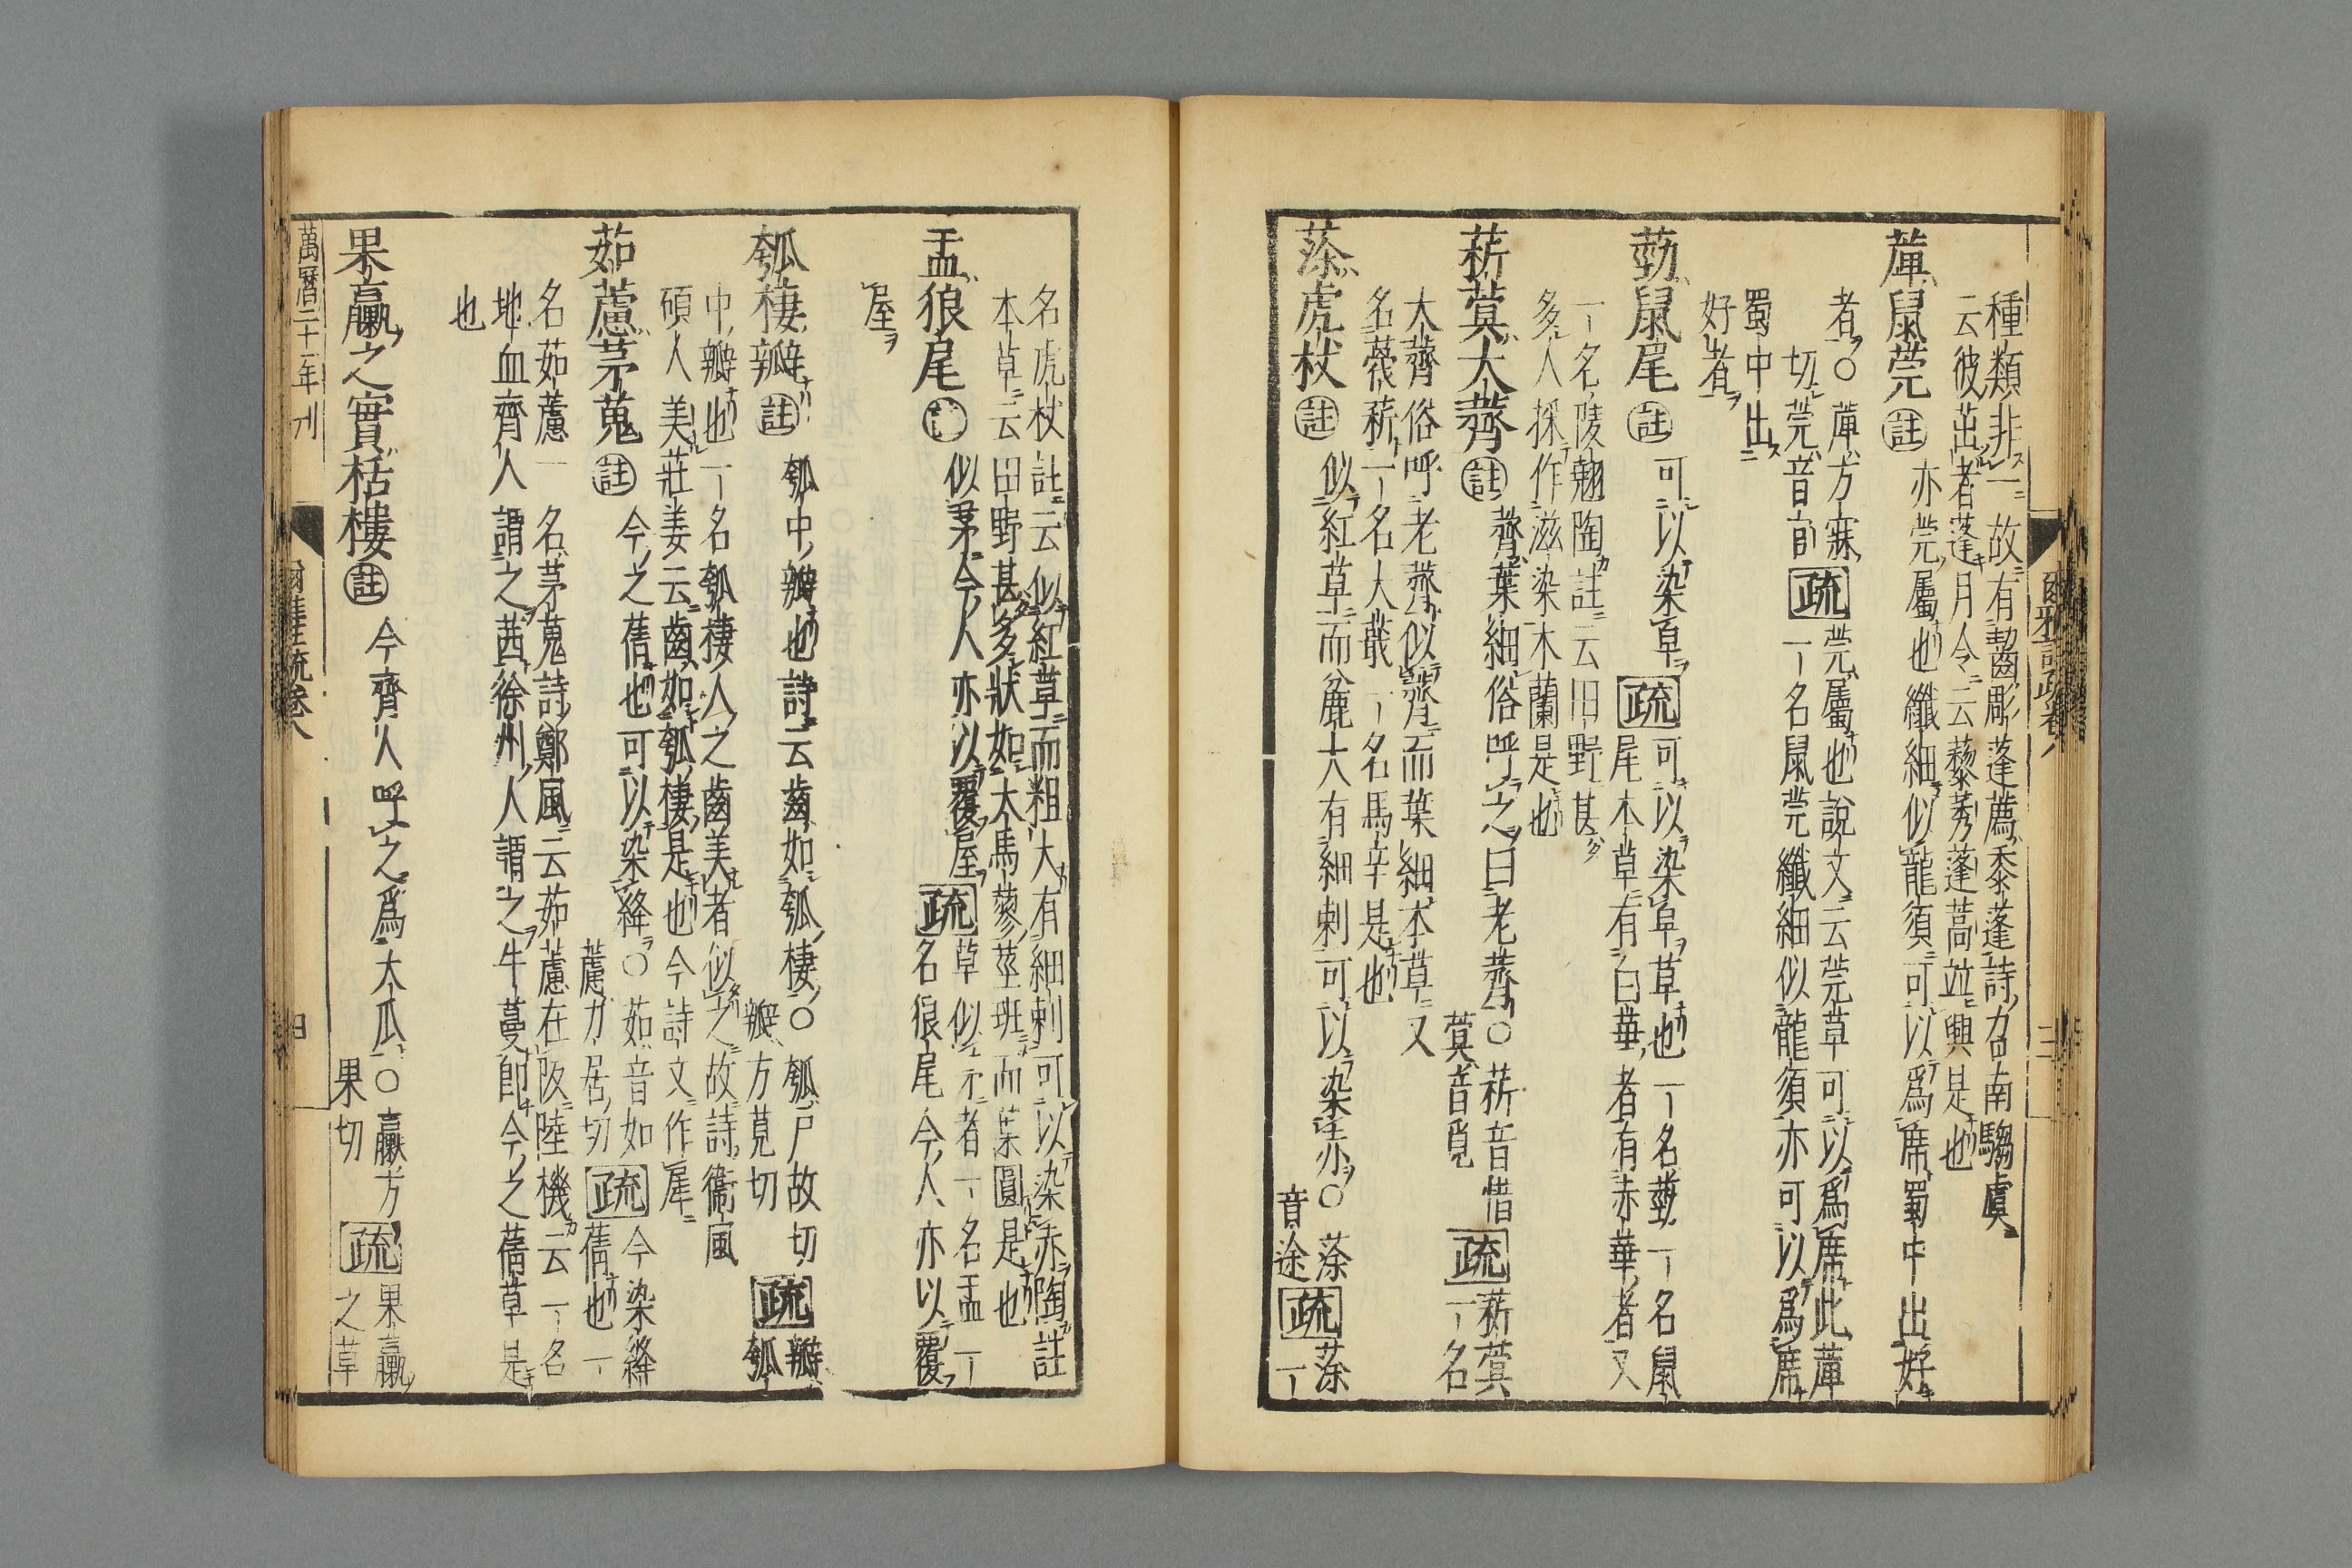 爾雅註疏卷八
種類非一故有齧彫蓬薦黍蓬詩召南騶虞
云彼茁者蓬月令云藜莠蓬蒿竝興是也
䕠鼠莞 註 亦莞屬也纖細似龍須可以爲席蜀中出好
者○䕠方寐
切莞音官 疏 莞屬也說文云莞草可以爲席此䕠
一名鼠莞纖細似龍須亦可以爲席
蜀中出
好者
葝鼠尾 註 可以染皁 疏 可以染皁草也一名葝一名鼠
尾本草有白華者有赤華者又
一名陵翹陶註云田野甚
多人採作滋染木蘭是也
菥蓂大薺 註 薺葉細俗呼之曰老薺○菥音惜
蓂音覓 疏 菥蓂
一名
大薺俗呼老薺似薺而葉細本草又
名蔑菥一名大蕺一名馬辛是也
蒤虎杖 註 似紅草而麄大有細刺可以染赤○蒤
音途 疏 蒤一
名虎杖註云似紅草而粗大有細刺可以染赤陶註
本草云田野甚多狀如大馬蓼莖班而葉圓是也
孟狼尾 註 似茅今人亦以覆屋 疏 草似茅者一名孟一
名狼尾今人亦以覆
屋
瓠棲瓣 註 瓠中瓣也詩云齒如瓠棲○瓠戶故切
瓣方莧切 疏 瓣
瓠
中瓣也一名瓠棲人之齒美者似之故詩衞風
碩人美莊姜云齒如瓠棲是也今詩文作犀
茹藘茅蒐 註 今之蒨也可以染絳○茹音如
藘力居切 疏 今染絳
蒨也一
名茹藘一名茅蒐詩鄭風云茹藘在阪陸機云一名
地血齊人謂之茜徐州人謂之牛蔓卽今之蒨草是
也
果臝之實栝樓 註 今齊人呼之爲大瓜○臝力
果切 疏 果臝
之草
萬曆二十一年刊
爾雅註疏卷八